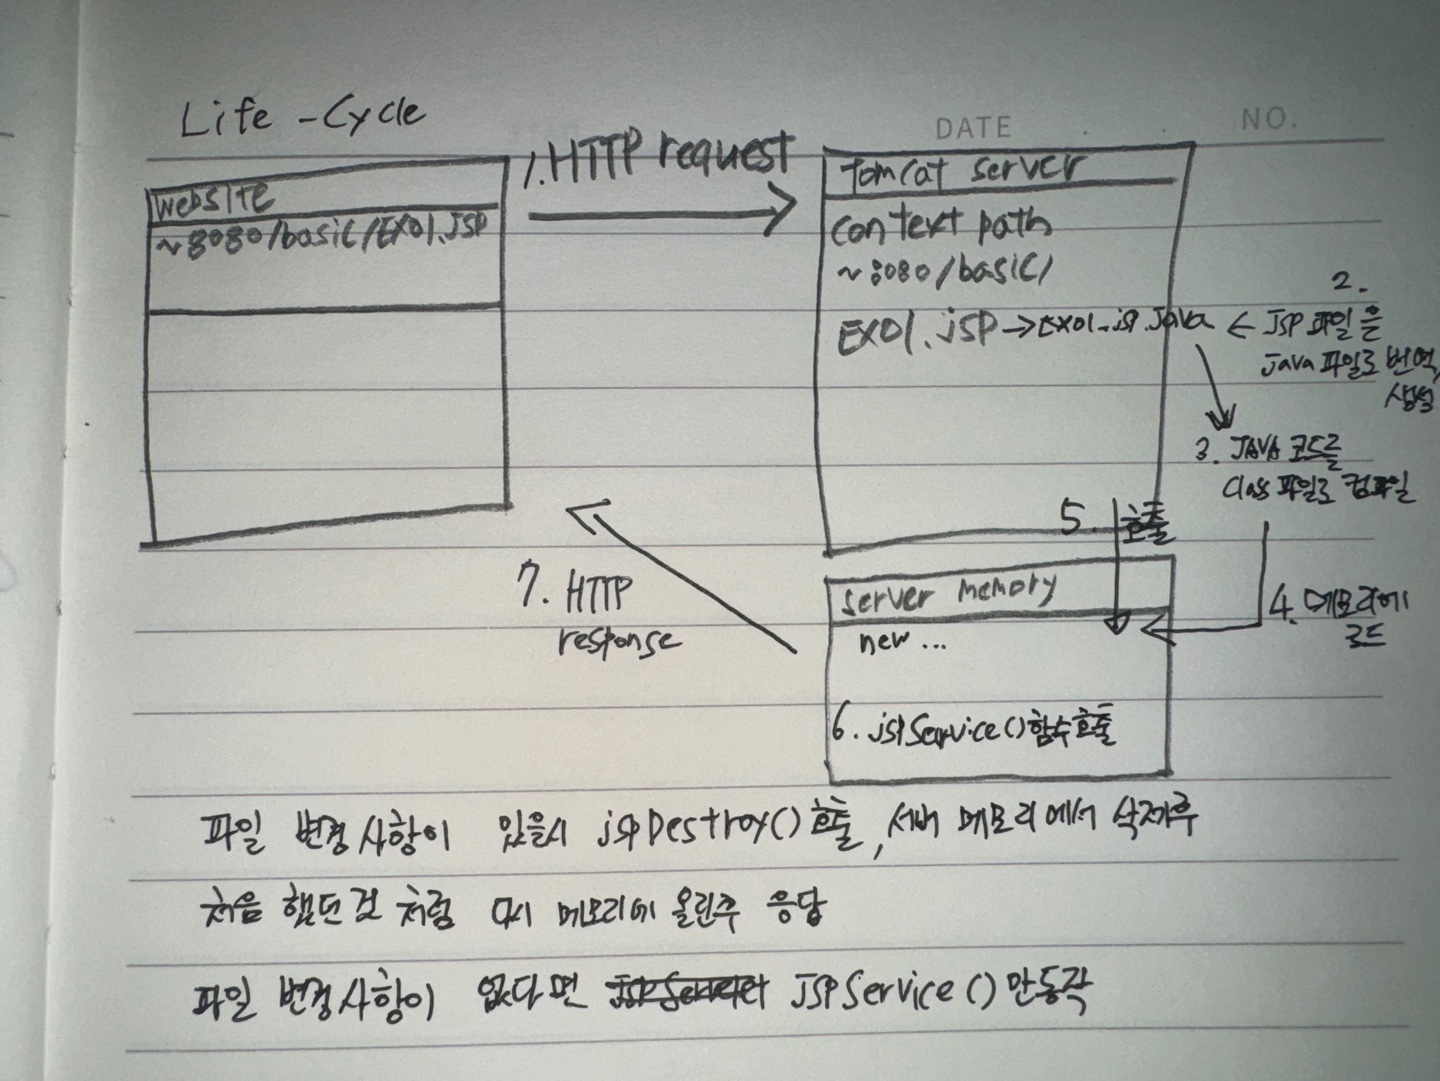 Life -Cycle
DATE . . NO.
1. HTTP request
website
~8080/basic/EX01.JSP
Tomcat server
context path
~:8080/basic/
EX01.jsp → EX01_jsp.java ←
2.
JSP 파일을
Java 파일로 번역,
생성
3. JAVA 코드를
Class 파일로 컴파일
5. 호출
4. 메모리에
로드
server memory
new ...
6. jspService() 함수호출
7. HTTP
response
파일 변경사항이 있을시 jspDestroy() 호출, 서버 메모리에서 삭제후
처음 했던것 처럼 다시 메모리에 올린후 응답
파일 변경사항이 없다면 JSPService() 만동작